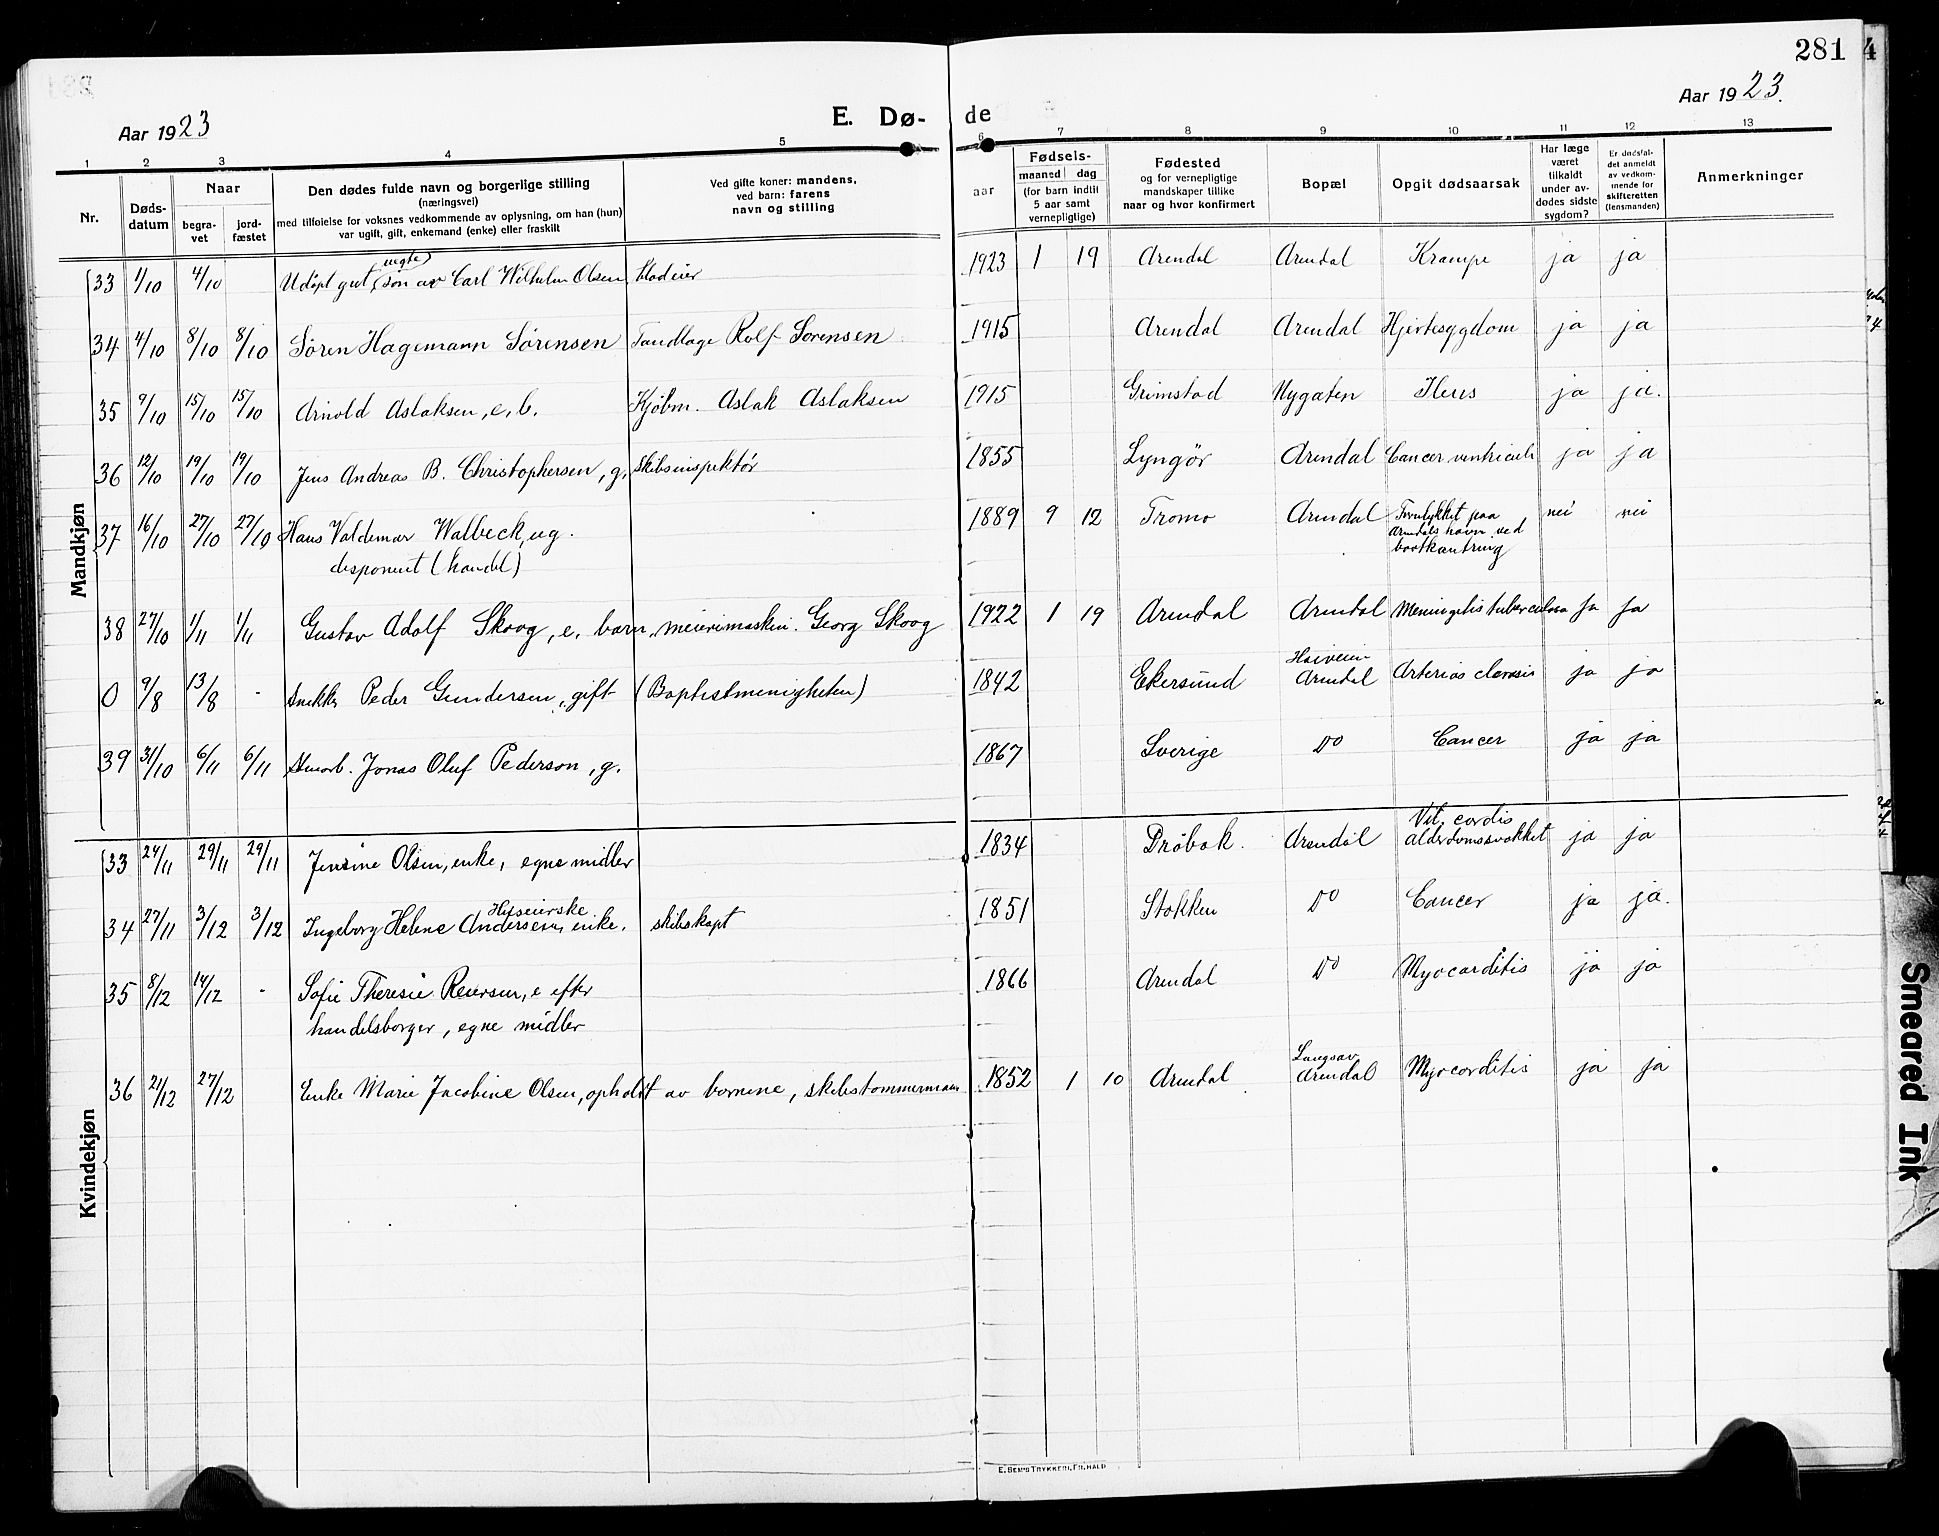 281
4
Aar 1923
E. Dø- de
Aar 1923.
1 2 3 4 5 6 7 8 9 10 11 12 13
Nr.
Døds-
datum
Naar
begra-
vet
jord-
fæstet
Den dødes fulde navn og borgerlige stilling
(næringsvei)
med tilføielse for voksnes vedkommende av oplysning, om han (hun)
var ugift, gift, enkemand (enke) eller fraskilt
Ved gifte koner: mandens,
ved barn: farens
navn og stilling
aar
Fødsels-
maaned dag
(for barn indtil
5 aar samt
vernepligtige)
Fødested
og for vernepligtige
mandskaper tillike
naar og hvor konfirmert
Bopæl
Opgit dødsaarsak
Har læge
været
tilkaldt
under av-
dødes sidste
sygdom?
Er dødsfal-
det anmeldt
av vedkom-
mende for
skifteretten
(lensmanden)
Anmerkninger
Mandkjøn
33 1/10 4/10 Udöpt gut, (uegte) søn av Carl Wilhelm Olsen, 1923 1 19 Arendal Arendal Krampe ja ja
34 4/10 8/10 8/10 Søren Hagemann Sørensen Tandlæge Rolf Sørensen 1915 Arendal Arendal Hjertesygdom ja ja
35 9/10 15/10 15/10 Arnold Aslaksen, e. b. Kjøbm. Aslak Aslaksen 1915 Grimstad Nygaten Ileus ja ja.
36 12/10 19/10 19/10 Jens Andreas B. Christophersen, g. skibsinspektør 1855 Lyngør Arendal Cancer ventriculi ja ja
37 16/10 27/10 27/10 Hans Valdemar Walbeck, ug. 1889 9 12 Tromø Arendal Forulykket paa nei nei
disponent (handel) Arendals havn ved
baatkantring
38 27/10 1/11 1/11 Gustav Adolf Skoog, e. barn, meierimaskin. Georg Skoog 1922 1 19 Arendal Arendal Meningitis tuberculosa ja ja
0 9/8 13/8 - Snekker Peder Gundersen, gift (Baptistmenigheten) 1842 Ekersund Høiveien Arendal Arterios clerosis ja ja
39 31/10 6/11 6/11 Jonas Oluf Pederson, g. 1867 Sverige Do Cancer ja ja
Kvindekjøn
33 24/11 29/11 29/11 Jensine Olsen, enke, egne midler 1834 Drøbak. Arendal Vit. cordis
alderdomssvakket ja ja
34 27/11 3/12 3/12 Ingeborg Helene Andersen, Huseierske enke. skibskapt 1851 Stokken Do Cancer ja ja.
35 8/12 14/12 - Sofie Theresie Reiersen, e efter 1866 Arendal Do Myocarditis ja ja
handelsborger, egne midler
36 21/12 27/12 Enke Marie Jacobine Olsen, opholdt av børnene, skibstømmermann 1852 1 10 Arendal Langsæv Arendal Myocarditis ja ja
E. SEM'S TRYKKERI, FR.HALD
Smeared Ink